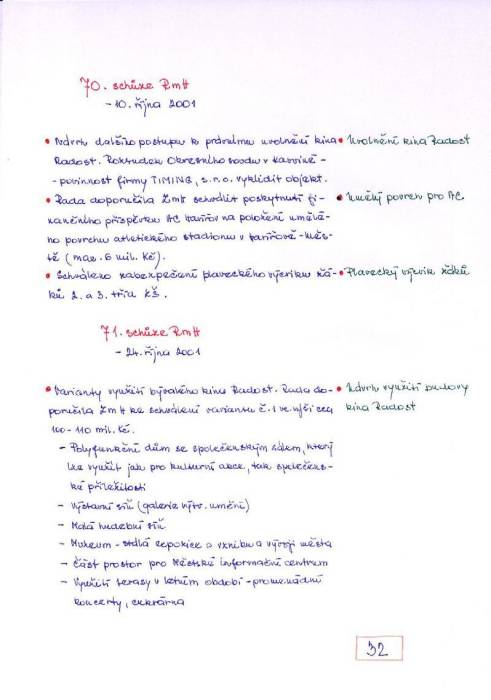 70. schůze RmH
- 10. října 2001
• Návrh dalšího postupu k právnímu uvolnění kina
Radost. Rozsudek Okresního soudu v Karviné -
- povinnost firmy TIMING, s.r.o. vyklidit objekt.
• Uvolnění kina Radost
• Rada doporučila ZmH schválit poskytnutí fi-
nančního příspěvku AC Havířov na položení umělé-
ho povrchu atletického stadionu v Havířově-Měs-
tě (max. 6 mil. Kč).
• Umělý povrch pro AC
• Schváleno zabezpečení plaveckého výcviku žá-
ků 2. a 3. tříd ZŠ.
• Plavecký výcvik žáků
71. schůze RmH
- 24. října 2001
• Varianty využití bývalého kina Radost. Rada do-
poručila ZmH ke schválení variantu č. 1 ve výši cca
100-110 mil. Kč.
• Návrh využití budovy
kina Radost
- Polyfunkční dům se společenským sálem, který
lze využít jak pro kulturní akce, tak společens-
ké příležitosti
- Výstavní síň (galerie výtv. umění)
- Malá hudební síň
- Muzeum - stálá expozice o vzniku a vývoji města
- Část prostor pro Městské informační centrum
- Využití terasy v letním období - promenádní
koncerty, cukrárna
32